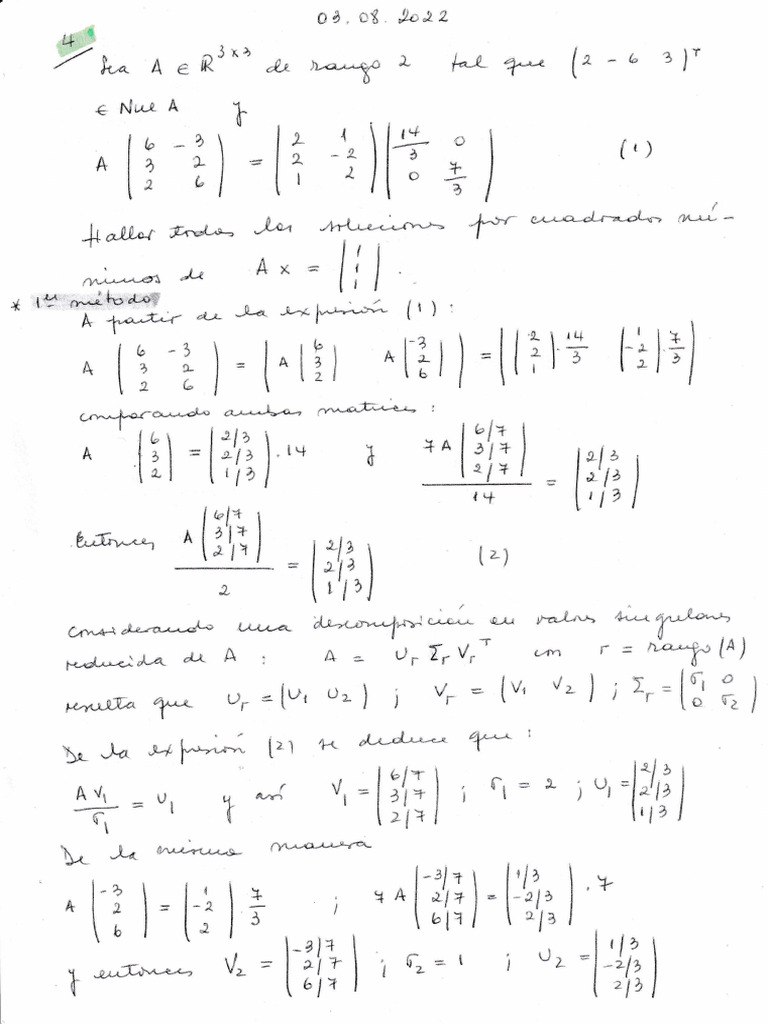 03.08.2022
4
Sea A ∈ ℝ^{3×3} de rango 2 tal que (2 -6 3)^T
∈ Nul A y
A \begin{pmatrix} 6 & -3 \\ 3 & 2 \\ 2 & 6 \end{pmatrix} = \begin{pmatrix} 2 & 1 \\ 2 & -2 \\ 1 & 2 \end{pmatrix} \begin{pmatrix} \frac{14}{3} & 0 \\ 0 & \frac{7}{3} \end{pmatrix} (1)
Hallar todas las soluciones por cuadrados mí-
nimos de A x = \begin{pmatrix} 1 \\ 1 \\ 1 \end{pmatrix}.
* 1er método
A partir de la expresión (1):
A \begin{pmatrix} 6 & -3 \\ 3 & 2 \\ 2 & 6 \end{pmatrix} = \begin{pmatrix} A \begin{pmatrix} 6 \\ 3 \\ 2 \end{pmatrix} & A \begin{pmatrix} -3 \\ 2 \\ 6 \end{pmatrix} \end{pmatrix} = \begin{pmatrix} \begin{pmatrix} 2 \\ 2 \\ 1 \end{pmatrix} . \frac{14}{3} & \begin{pmatrix} 1 \\ -2 \\ 2 \end{pmatrix} . \frac{7}{3} \end{pmatrix}
comparando ambas matrices:
A \begin{pmatrix} 6 \\ 3 \\ 2 \end{pmatrix} = \begin{pmatrix} 2/3 \\ 2/3 \\ 1/3 \end{pmatrix} . 14 y \frac{7 A \begin{pmatrix} 6/7 \\ 3/7 \\ 2/7 \end{pmatrix}}{14} = \begin{pmatrix} 2/3 \\ 2/3 \\ 1/3 \end{pmatrix}
Entonces \frac{A \begin{pmatrix} 6/7 \\ 3/7 \\ 2/7 \end{pmatrix}}{2} = \begin{pmatrix} 2/3 \\ 2/3 \\ 1/3 \end{pmatrix} (2)
considerando una descomposición en valores singulares
reducida de A : A = U_r Σ_r V_r^T con r = rango (A)
resulta que U_r = (U_1 U_2) ; V_r = (V_1 V_2) ; Σ_r = \begin{pmatrix} σ_1 & 0 \\ 0 & σ_2 \end{pmatrix}
De la expresión (2) se deduce que :
\frac{A V_1}{σ_1} = U_1 y así V_1 = \begin{pmatrix} 6/7 \\ 3/7 \\ 2/7 \end{pmatrix} ; σ_1 = 2 ; U_1 = \begin{pmatrix} 2/3 \\ 2/3 \\ 1/3 \end{pmatrix}
De la misma manera
A \begin{pmatrix} -3 \\ 2 \\ 6 \end{pmatrix} = \begin{pmatrix} 1 \\ -2 \\ 2 \end{pmatrix} . \frac{7}{3} ; 7 A \begin{pmatrix} -3/7 \\ 2/7 \\ 6/7 \end{pmatrix} = \begin{pmatrix} 1/3 \\ -2/3 \\ 2/3 \end{pmatrix} . 7
y entonces V_2 = \begin{pmatrix} -3/7 \\ 2/7 \\ 6/7 \end{pmatrix} ; σ_2 = 1 ; U_2 = \begin{pmatrix} 1/3 \\ -2/3 \\ 2/3 \end{pmatrix}